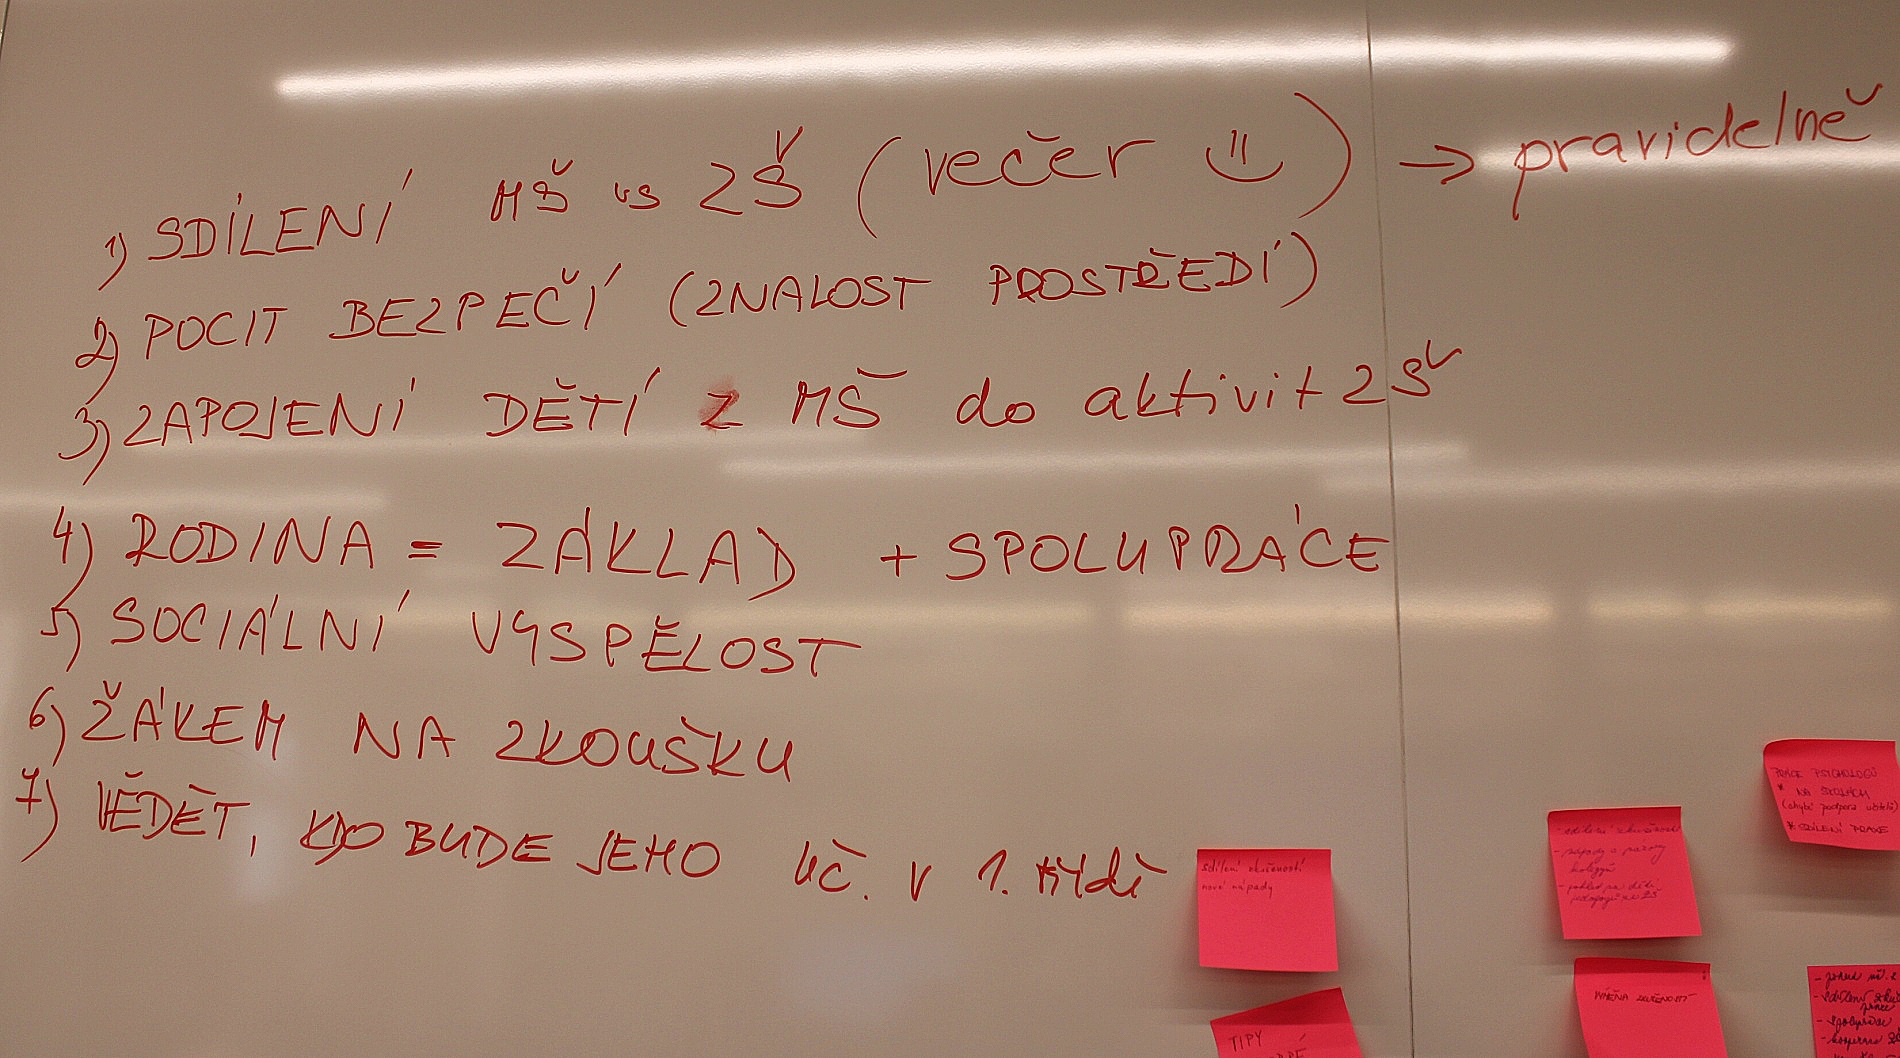 1) SDÍLENÍ MŠ vs ZŠ (večer) → pravidelně
2) POCIT BEZPEČÍ (ZNALOST PROSTŘEDÍ)
3) ZAPOJENÍ DĚTÍ Z MŠ do aktivit ZŠ
4) RODINA = ZÁKLAD + SPOLUPRÁCE
5) SOCIÁLNÍ VYSPĚLOST
6) ŽÁKEM NA ZKOUŠKU
7) VĚDĚT, KDO BUDE JEHO UČ. V 1. třídě
sdílení zkušeností
nové nápady
TIPY
- sdílení zkušeností
- nápady a názory
kolegyň
- pohled na děti
pedagogů ze ZŠ
VÝMĚNA ZKUŠENOSTÍ
PRÁCE PSYCHOLOGŮ
* NA ŠKOLÁCH
(chybí podpora učitelů)
* SDÍLENÍ PRAXE
- sdílení
- spolupráce